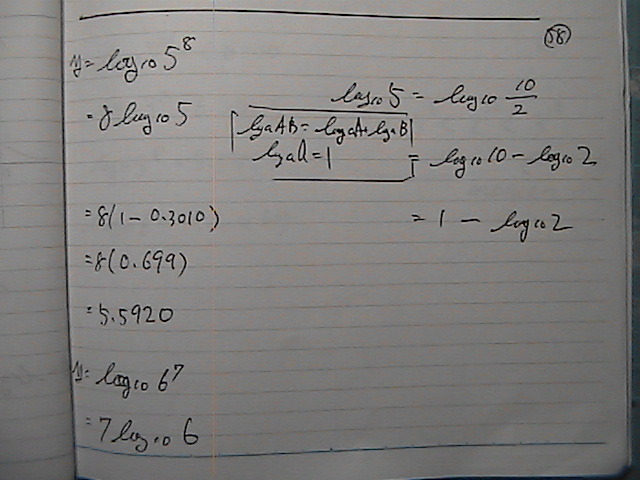 58
y = log₁₀ 5⁸
= 8 log₁₀ 5
log₁₀ 5 = log₁₀ 10/2
log a AB = log a A + log a B
log a a = 1
= log₁₀ 10 − log₁₀ 2
= 8(1 − 0.3010)
= 1 − log₁₀ 2
= 8(0.699)
= 5.5920
y = log₁₀ 6⁷
= 7 log₁₀ 6